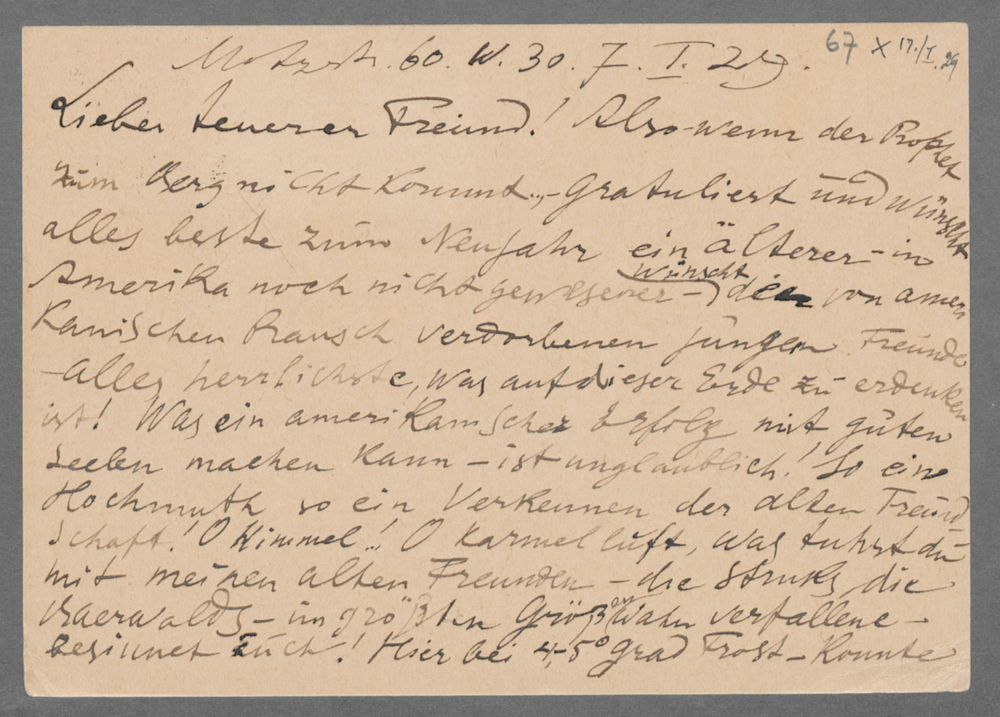 67 x 17./I. 29
Motzstr. 60. W. 30. 7. I. 29.
Lieber teuerer Freund! Also-wenn der Prophet
zum Berg nicht kommt..- gratuliert und wünscht
alles beste zum Neujahr ein älterer - in
Amerika noch nicht gewesener - wünscht den von ameri
kanischen Rausch verdorbenen jungen Freunde
- alles herrlichste, was auf dieser Erde zu erdenken
ist! Was ein amerikanischer Erfolg mit guten
Seelen machen kann - ist unglaublich! So ein
Hochmuth so ein Verkennen der alten Freund-
schaft! O Himmel!! O Karmelluft, was tuhst du
mit meinen alten Freunden - die Struks, die
Baerwalds - in größten Größenwahn verfallene -
besinnet Euch! Hier bei 4-5° grad Frost - konnte